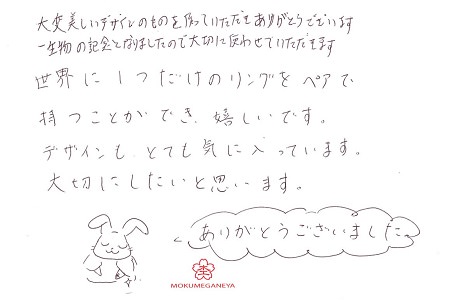 大変美しいデザインのものを作っていただきありがとうございます
一生物の記念となりましたので大切に使わせていただきます
世界に1つだけのリングをペアで
持つことができ、嬉しいです。
デザインも、とても気に入っています。
大切にしたいと思います。
ありがとうございました。
MOKUMEGANEYA